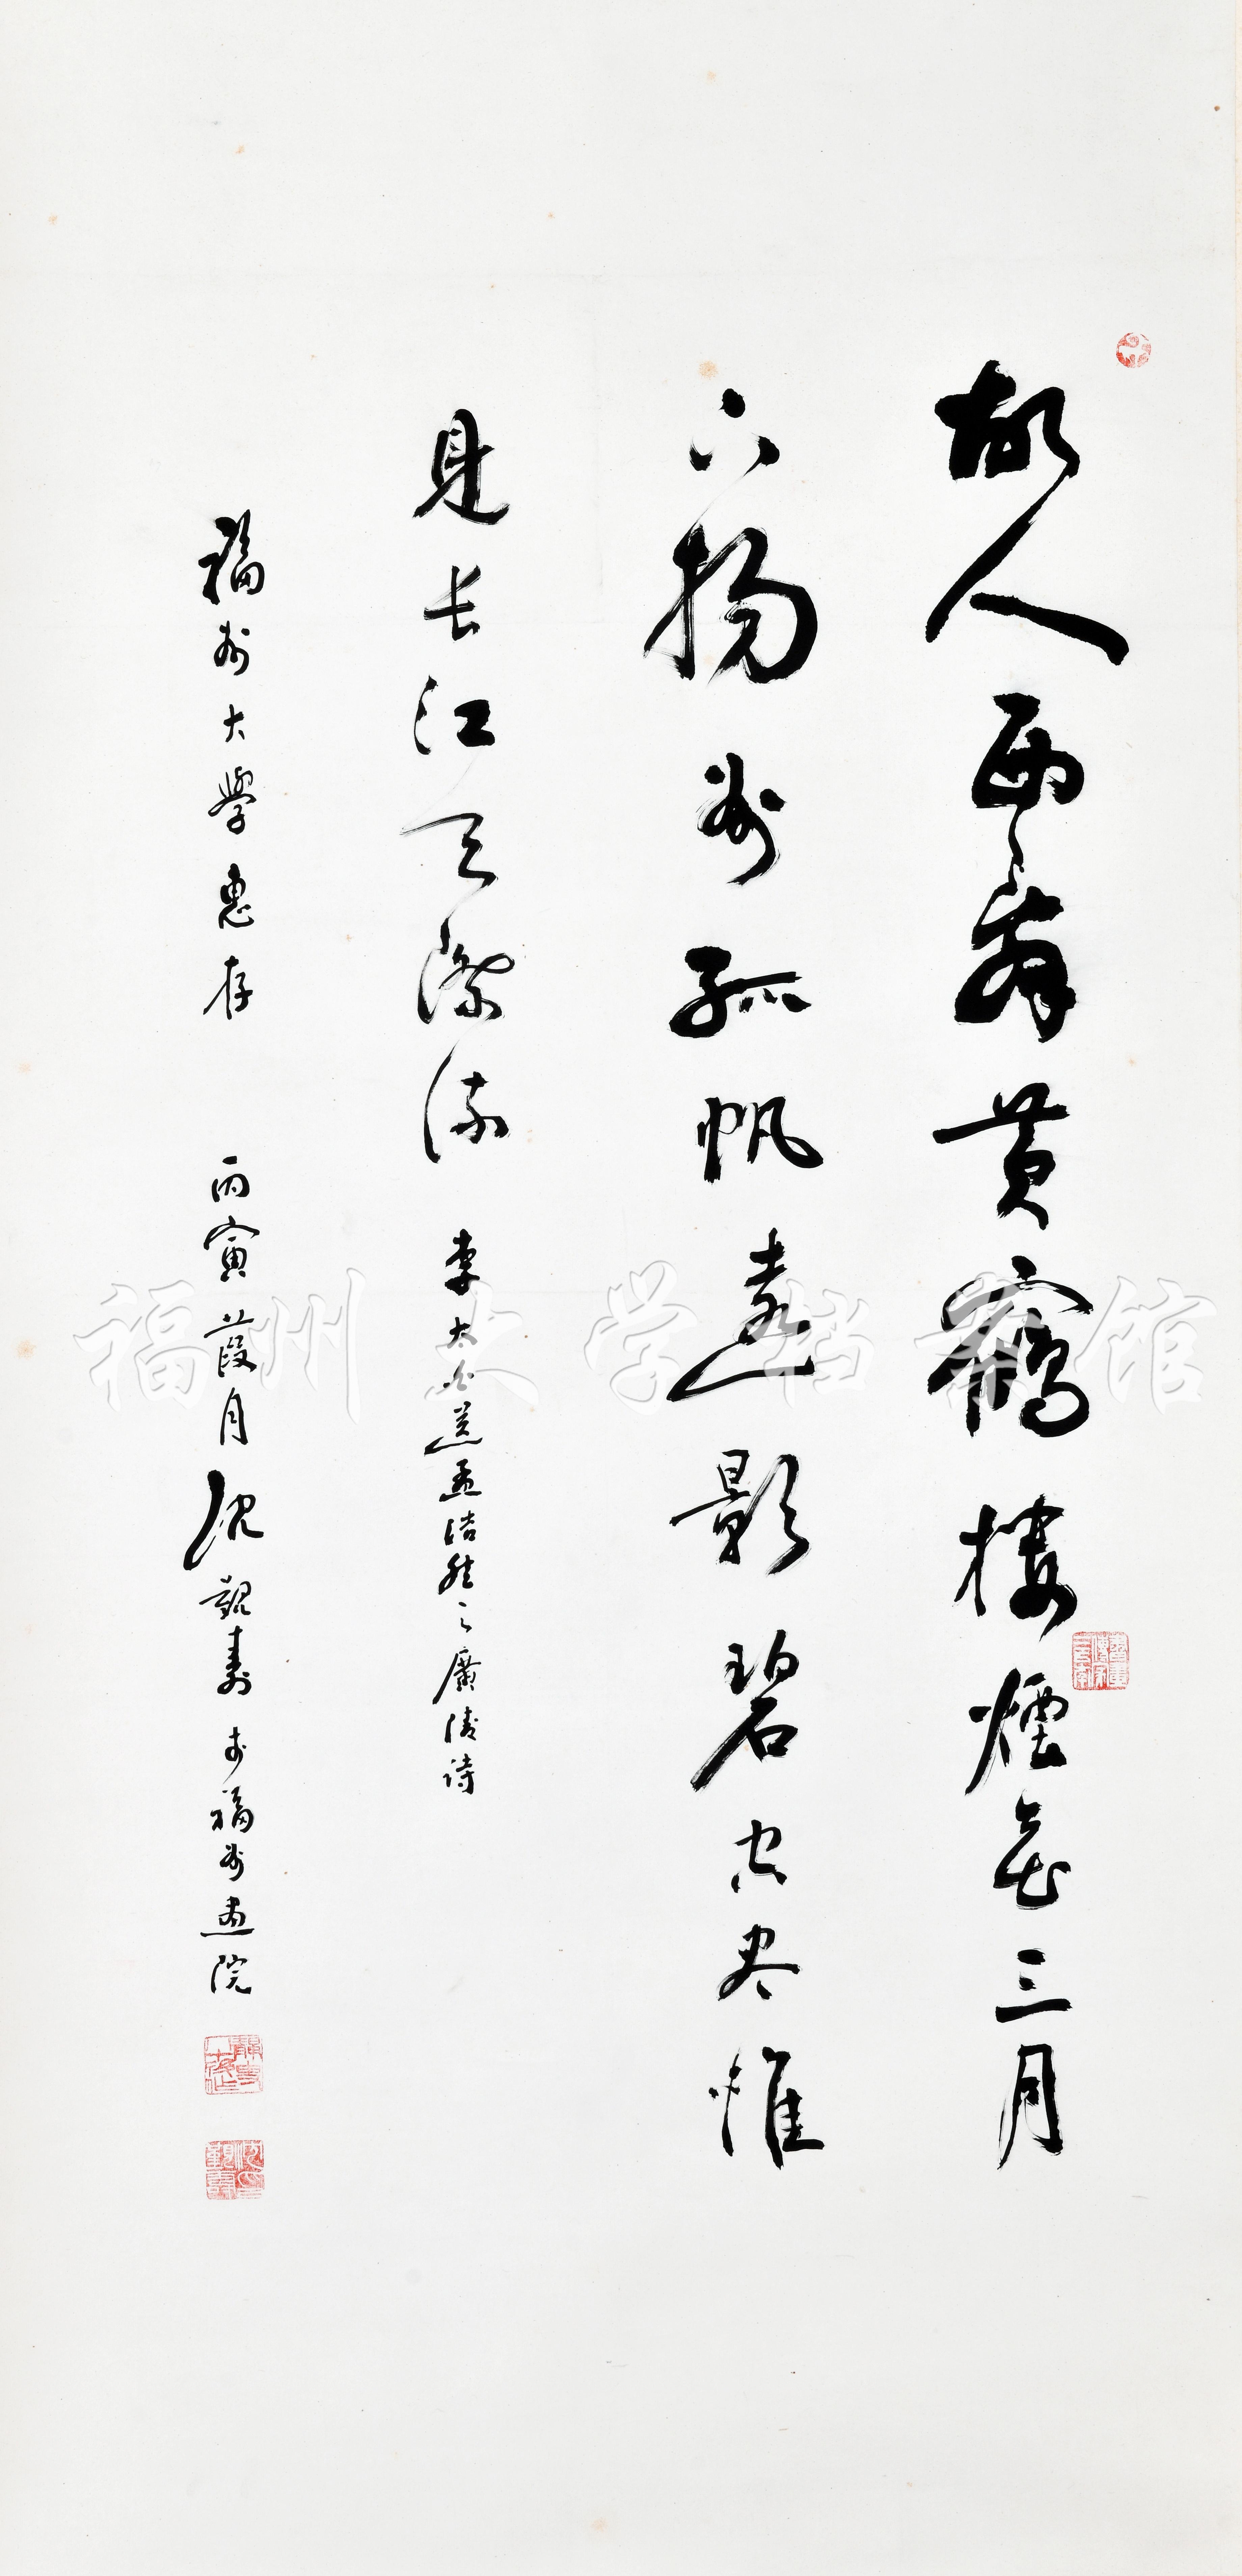 故人西辞黄鶴樓煙花三月
下揚州孤帆遠影碧空尽惟
見长江天際流 李太白送孟浩然之廣陵詩
福州大學惠存 丙寅葭月沈覲壽於福州畫院
福州大学档案馆